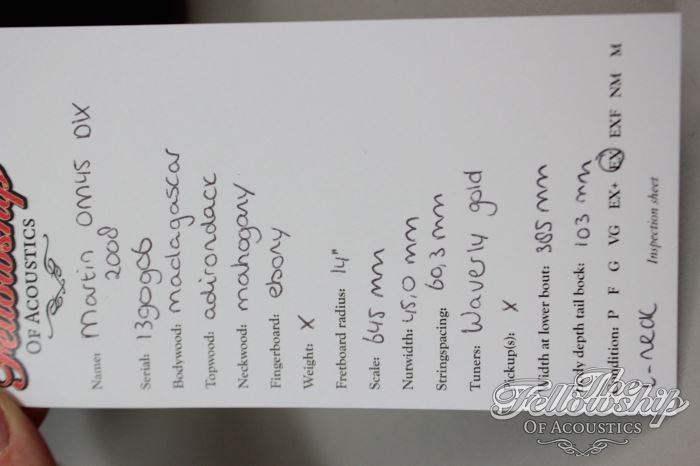 Fellowship
OF ACOUSTICS
Name: Martin OM45 DLX
2008
Serial: 1390906
Bodywood: madagascar
Topwood: adirondack
Neckwood: mahogany
Fingerboard: ebony
Weight: X
Fretboard radius: 14"
Scale: 645 mm
Nutwidth: 45,0 mm
Stringspacing: 60,3 mm
Tuners: Waverly gold
Pickup(s): X
Width at lower bout: 385 mm
Body depth tail bock: 103 mm
Condition: P F G VG EX+ EX EXF NM M
C-neck Inspection sheet
The
Fellowship
OF ACOUSTICS